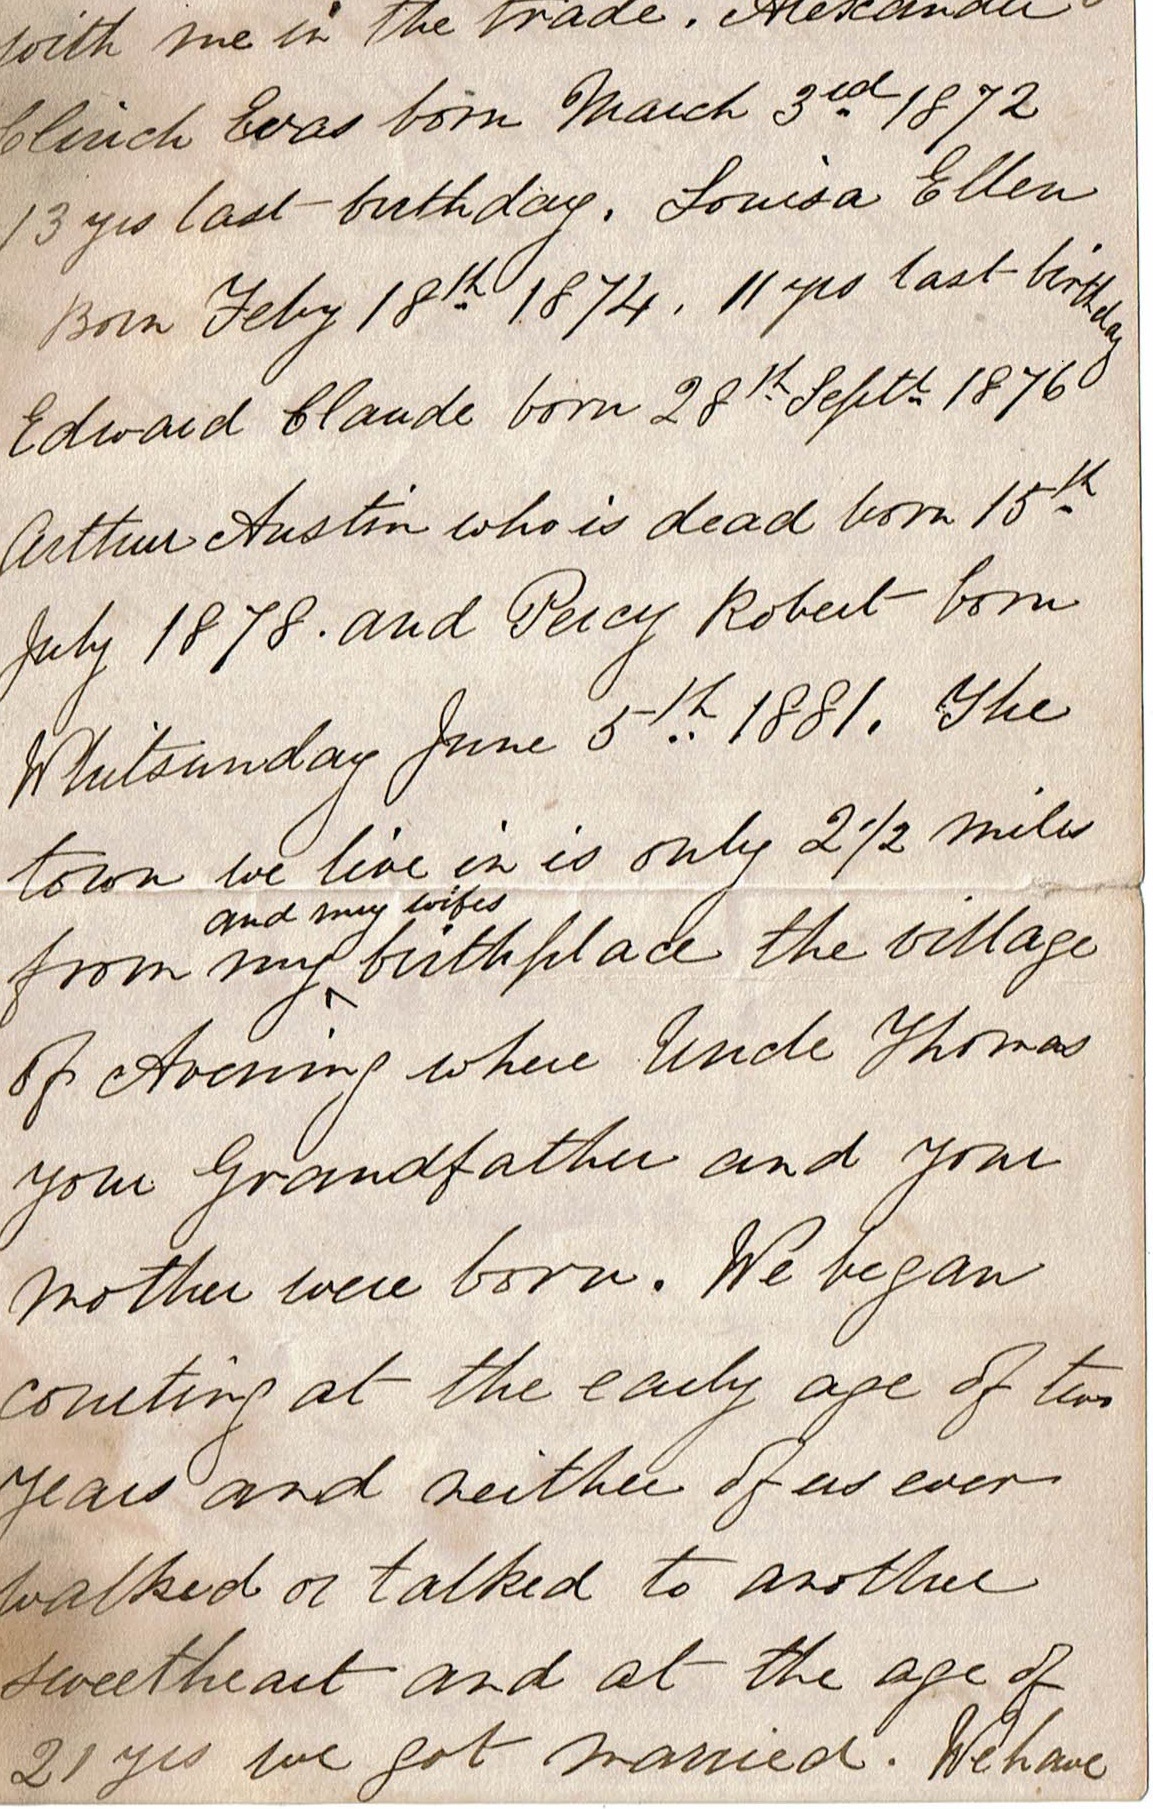 with me in the trade. Alexander
Clinch Evas born March 3rd 1872
13 yrs last birthday. Louisa Ellen
Born Feby 18th 1874. 11 yrs last birthday
Edward Claude born 28th Septr 1876
Arthur Austin who is dead born 15th
July 1878. and Percy Robert born
Whitsunday June 5th 1881. The
town we live in is only 2 1/2 miles
and my wifes
from my ^ birthplace the village
of Avening where Uncle Thomas
your Grandfather and your
mother were born. We began
courting at the early age of two
years and neither of us ever
walked or talked to another
sweetheart and at the age of
21 yrs we got married. We have